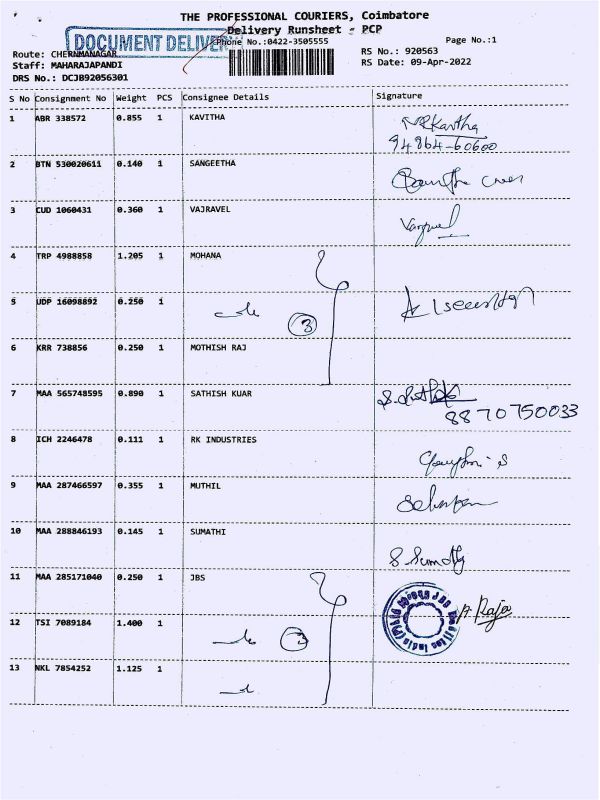 THE PROFESSIONAL COURIERS, Coimbatore
DOCUMENT DELIVERY
Delivery Runsheet - PCP
Phone No.:0422-3505555
Page No.:1
Route: CHERNMANAGAR
RS No.: 920563
Staff: MAHARAJAPANDI
RS Date: 09-Apr-2022
DRS No.: DCJB92056301
S No Consignment No Weight PCS Consignee Details Signature
1 ABR 338572 0.855 1 KAVITHA
94864-60600
2 BTN 530020611 0.140 1 SANGEETHA
3 CUD 1060431 0.360 1 VAJRAVEL
4 TRP 4988858 1.205 1 MOHANA
5 UDP 16098892 0.250 1
3
6 KRR 738856 0.250 1 MOTHISH RAJ
7 MAA 565748595 0.890 1 SATHISH KUAR
8870750033
8 ICH 2246478 0.111 1 RK INDUSTRIES
9 MAA 287466597 0.355 1 MUTHIL
10 MAA 288846193 0.145 1 SUMATHI
S. Sumathy
11 MAA 285171040 0.250 1 JBS
Raja
12 TSI 7089184 1.400 1
3
13 NKL 7854252 1.125 1